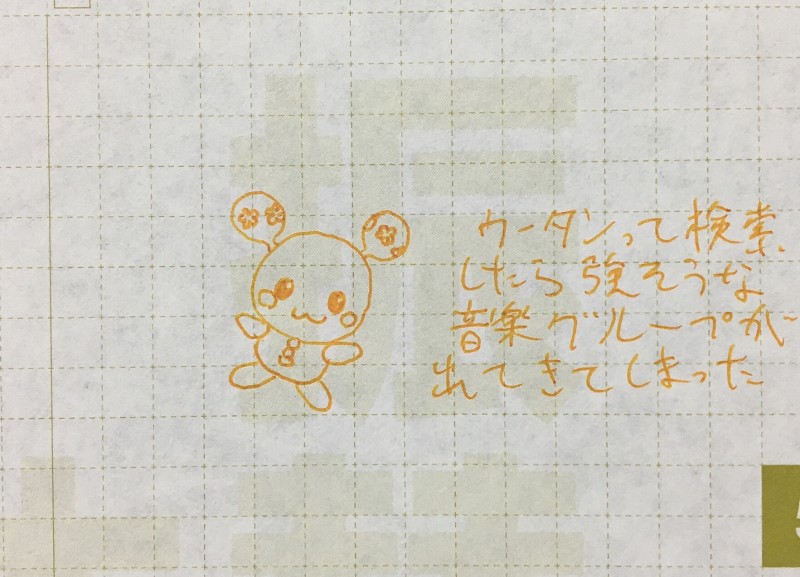 ウータンって検索
したら強そうな
音楽グループが
出てきてしまった